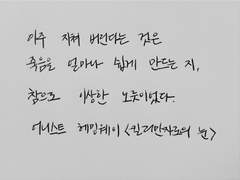 아주 지쳐 버린다는 것은
죽음을 얼마나 쉽게 만드는 지,
참으로 이상한 노릇이었다.
어니스트 헤밍웨이 <킬리만자로의 눈>